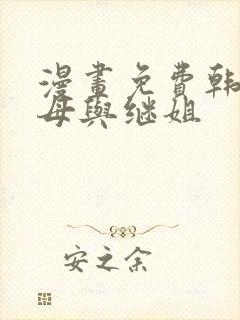 漫畫免費韩
母與继姐
安之余